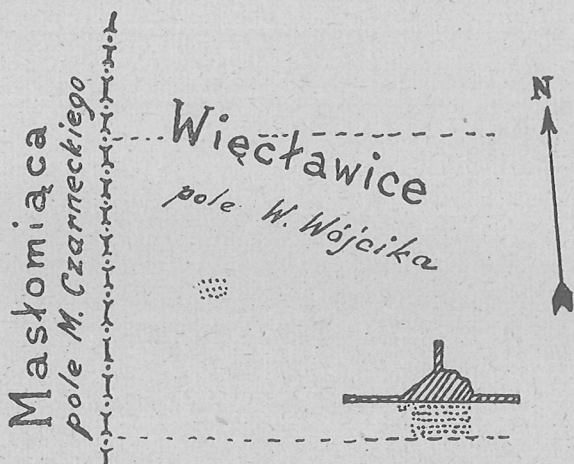 N
Masłomiąca
pole M. Czarneckiego
Więcławice
pole W. Wójcika